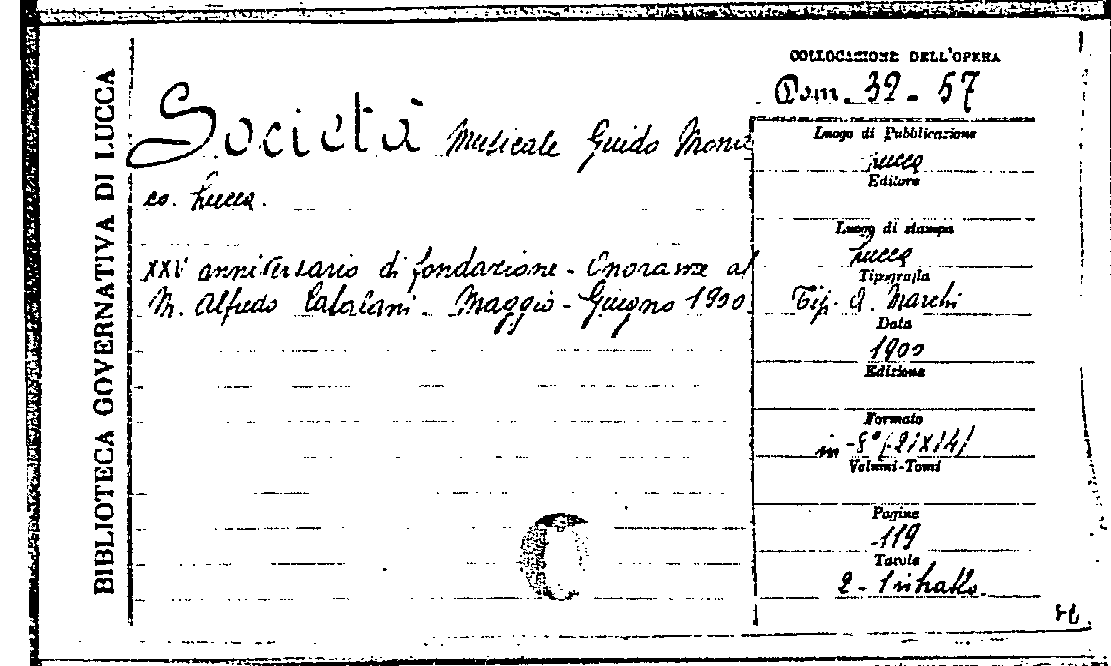 BIBLIOTECA GOVERNATIVA DI LUCCA
Società Musicale Guido Mona
co. Lucca.
XXV anniversario di fondazione - Onoranze al
M. Alfredo Catalani. Maggio - Giugno 1900.
COLLOCAZIONE DELL'OPERA
Dom. 32 - 57
Luogo di Pubblicazione
Lucca
Editore
Luogo di stampa
Lucca
Tipografia
Tip. A. Marchi
Data
1900
Edizione
Formato
in-8° (21X14)
Volumi-Tomi
Pagine
119
Tavole
2 - 1 ritratto.